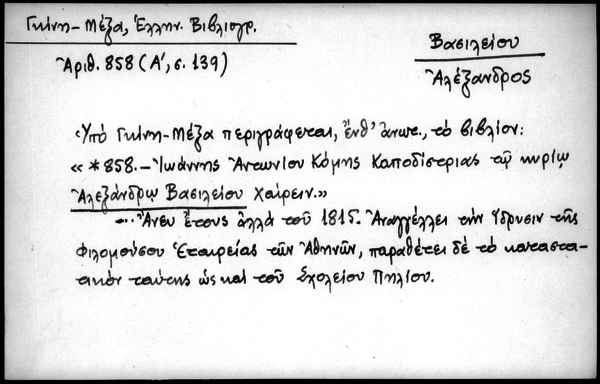 Γκίνη-Μέξα, Ἑλλην. Βιβλιογρ.
Ἀριθ. 858 (Α', σ. 139)
Βασιλείου
Ἀλέξανδρος
Ὑπὸ Γκίνη-Μέξα περιγράφεται, ἔνθ' ἀνωτ., τὸ βιβλίον:
« *858.— Ἰωάννης Ἀντωνίου Κόμης Καποδίστριας τῷ κυρίῳ
Ἀλεξάνδρῳ Βασιλείου Χαίρειν.»
... Ἄνευ ἔτους ἀλλὰ τοῦ 1815. Ἀναγγέλλει τὴν ἵδρυσιν τῆς
Φιλομούσου Ἑταιρείας τῶν Ἀθηνῶν, παραθέτει δὲ τὸ καταστα-
τικὸν ταύτης ὡς καὶ τοῦ Σχολείου Πηλίου.